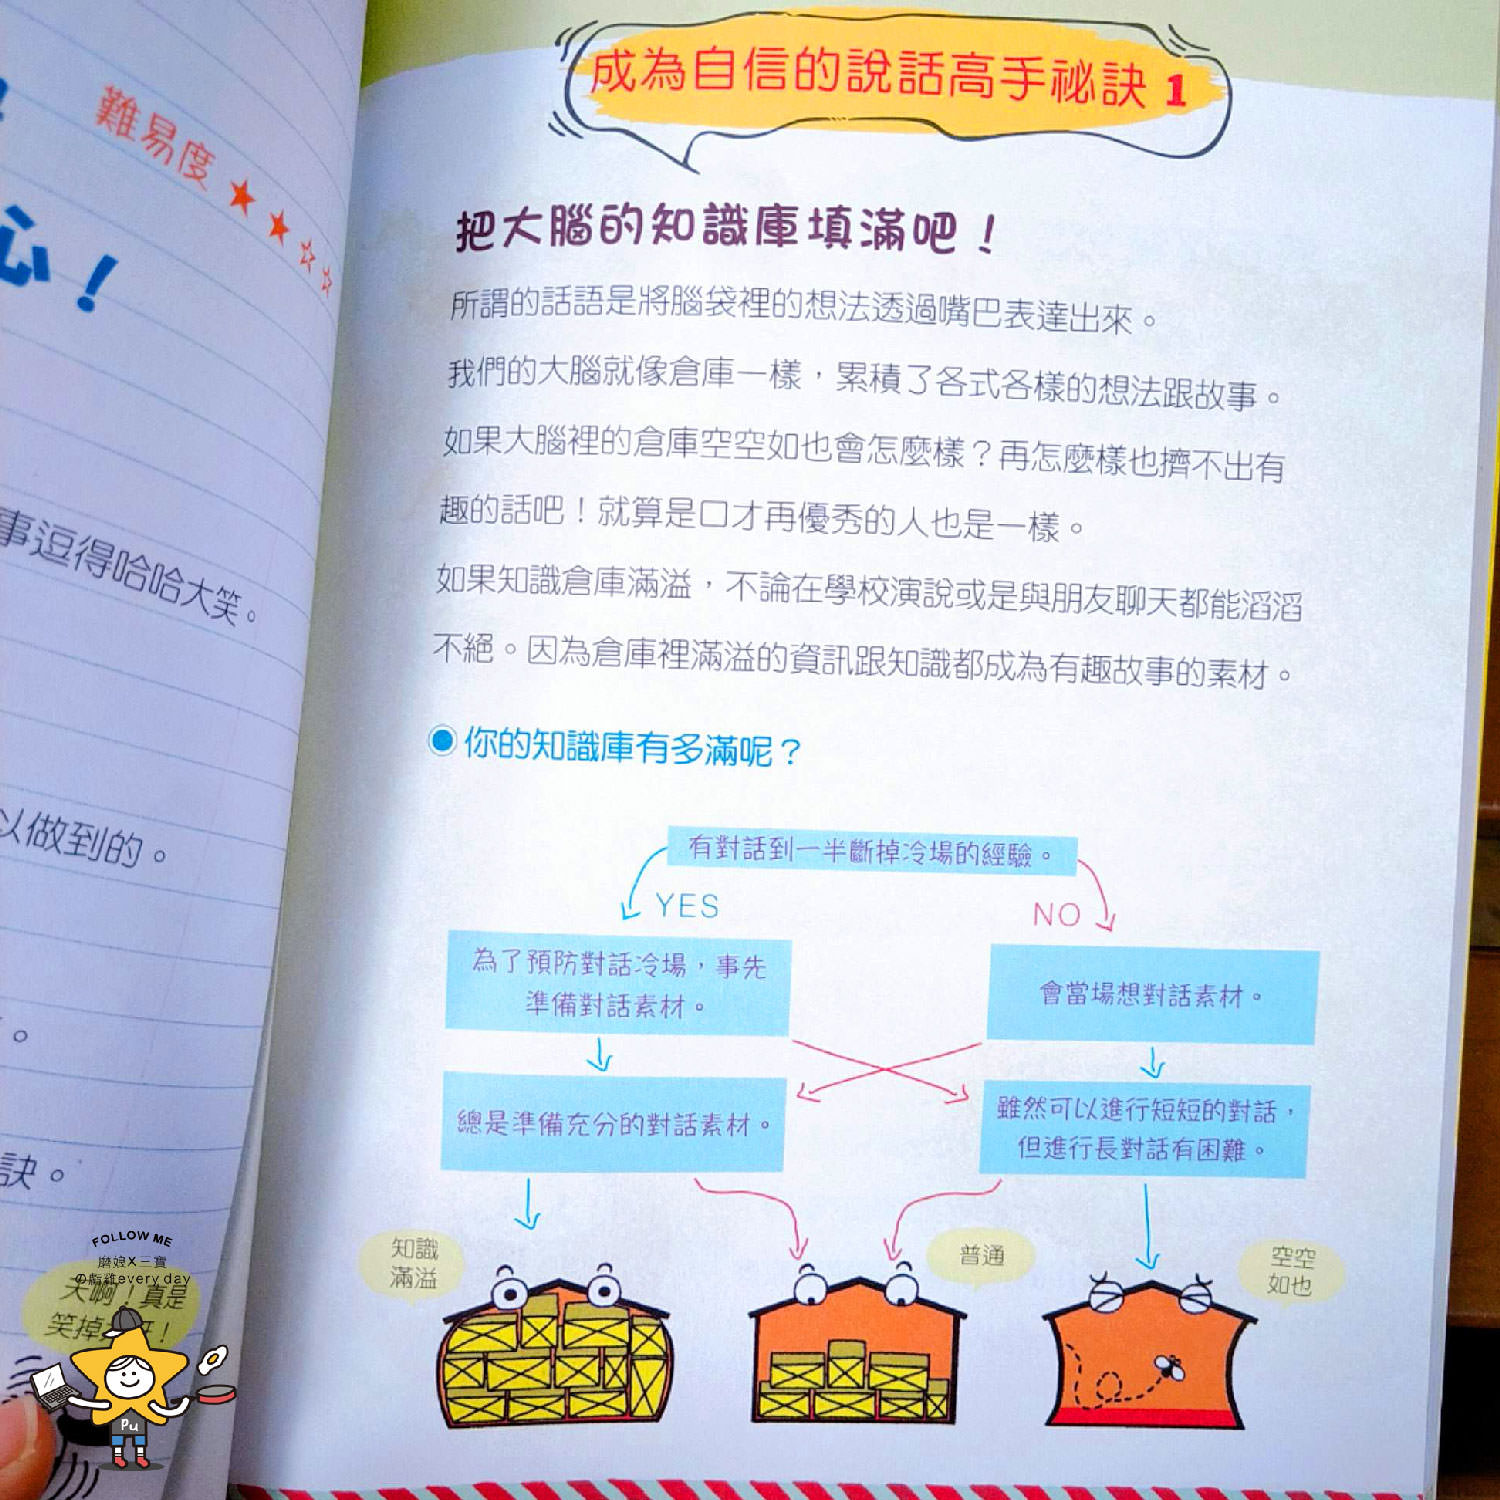 難易度 ★ ★ ☆ ☆
心！
事逗得哈哈大笑。
以做到的。
訣。
成為自信的說話高手祕訣 1
把大腦的知識庫填滿吧！
所謂的話語是將腦袋裡的想法透過嘴巴表達出來。
我們的大腦就像倉庫一樣，累積了各式各樣的想法跟故事。
如果大腦裡的倉庫空空如也會怎麼樣？再怎麼樣也擠不出有
趣的話吧！就算是口才再優秀的人也是一樣。
如果知識倉庫滿溢，不論在學校演說或是與朋友聊天都能滔滔
不絕。因為倉庫裡滿溢的資訊跟知識都成為有趣故事的素材。
你的知識庫有多滿呢？
有對話到一半斷掉冷場的經驗。
YES
NO
為了預防對話冷場，事先
準備對話素材。
會當場想對話素材。
總是準備充分的對話素材。
雖然可以進行短短的對話，
但進行長對話有困難。
知識
滿溢
普通
空空
如也
FOLLOW ME
磨娘X三寶
の脂雞every day
天啊！真是
笑掉
Pu